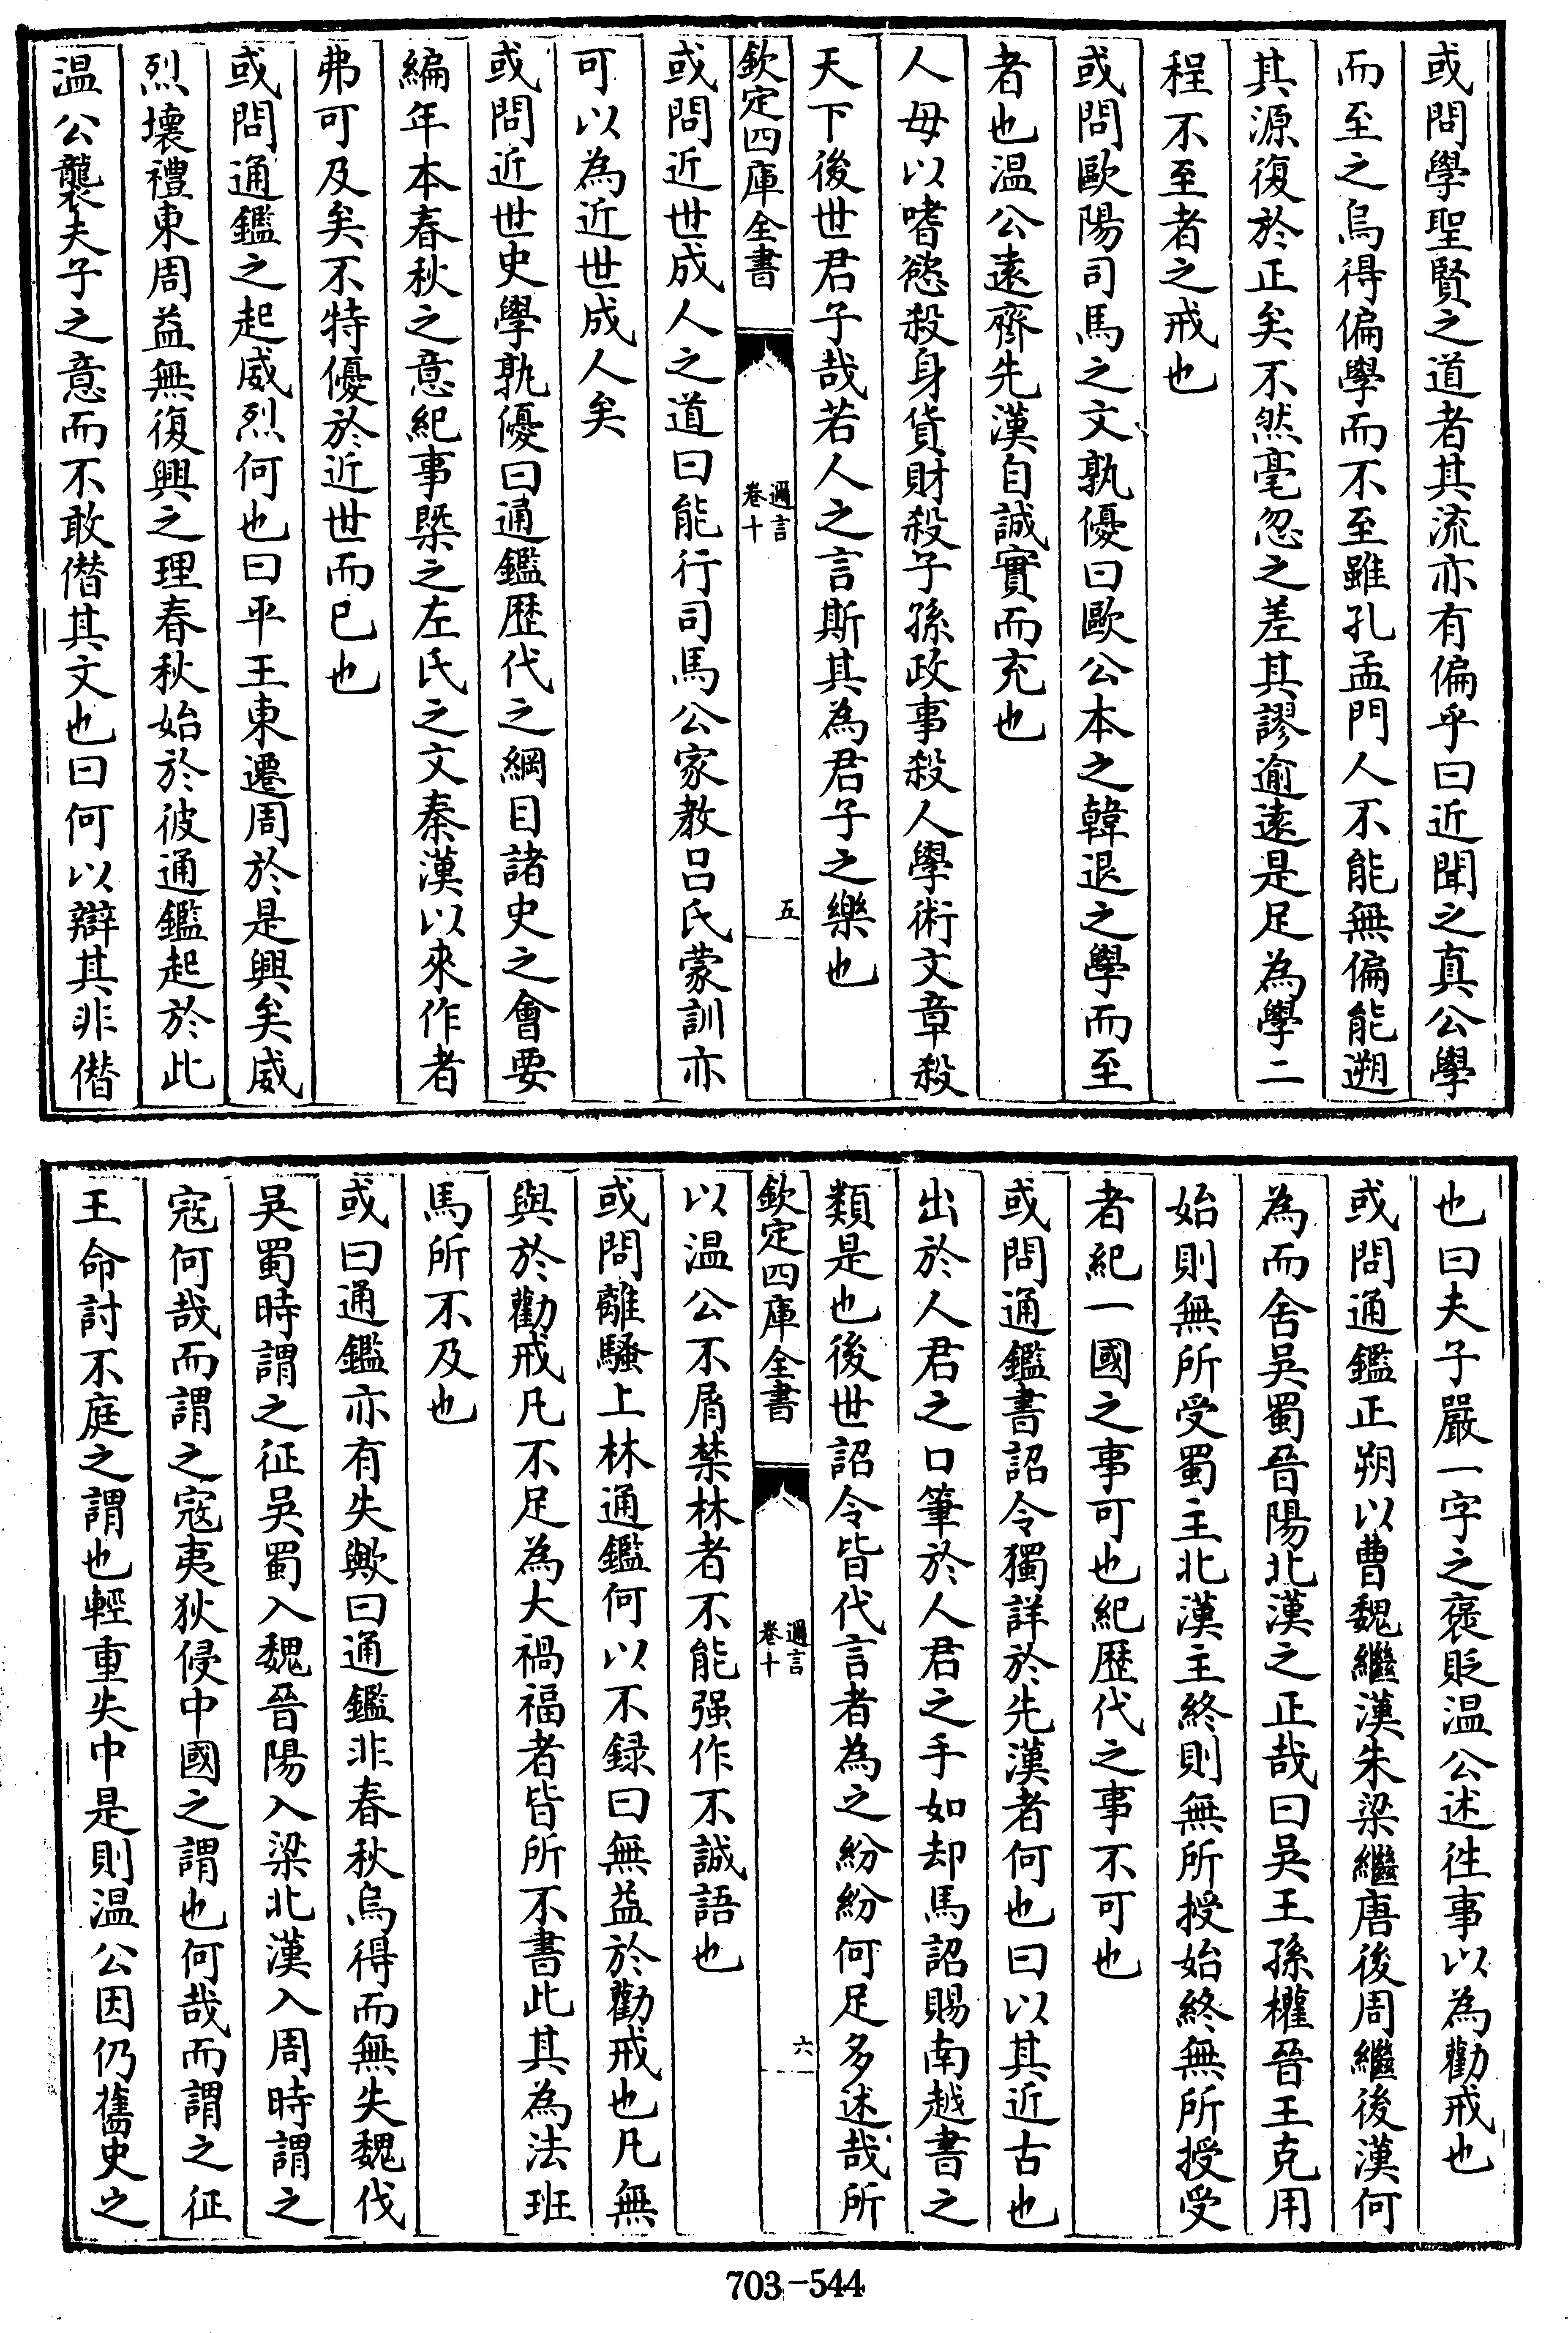 或問學聖賢之道者其流亦有偏乎曰近聞之真公學
而至之烏得偏學而不至雖孔孟門人不能無偏能遡
其源復於正矣不然毫忽之差其謬逾遠是足為學二
程不至者之戒也
或問歐陽司馬之文孰優曰歐公本之韓退之學而至
者也温公遠齊先漢自誠實而充也
人毋以嗜慾殺身貨財殺子孫政事殺人學術文章殺
天下後世君子哉若人之言斯其為君子之樂也
欽定四庫全書
邇言
卷十
五
或問近世成人之道曰能行司馬公家教吕氏蒙訓亦
可以為近世成人矣
或問近世史學孰優曰通鑑歴代之綱目諸史之會要
編年本春秋之意紀事槩之左氏之文秦漢以來作者
弗可及矣不特優於近世而已也
或問通鑑之起威烈何也曰平王東遷周於是興矣威
烈壞禮東周益無復興之理春秋始於彼通鑑起於此
温公襲夫子之意而不敢僭其文也曰何以辯其非僭
也曰夫子嚴一字之褒貶温公述徃事以為勸戒也
或問通鑑正朔以曹魏繼漢朱梁繼唐後周繼後漢何
為而舍吳蜀晉陽北漢之正哉曰吳王孫權晉王克用
始則無所受蜀主北漢主終則無所授始終無所授受
者紀一國之事可也紀歴代之事不可也
或問通鑑書詔令獨詳於先漢者何也曰以其近古也
出於人君之口筆於人君之手如却馬詔賜南越書之
類是也後世詔令皆代言者為之紛紛何足多述哉所
欽定四庫全書
邇言
卷十
六
以温公不屑禁林者不能强作不誠語也
或問離騷上林通鑑何以不録曰無益於勸戒也凡無
與於勸戒凡不足為大禍福者皆所不書此其為法班
馬所不及也
或曰通鑑亦有失歟曰通鑑非春秋烏得而無失魏伐
吳蜀時謂之征吳蜀入魏晉陽入梁北漢入周時謂之
寇何哉而謂之寇夷狄侵中國之謂也何哉而謂之征
王命討不庭之謂也輕重失中是則温公因仍舊史之
703-544